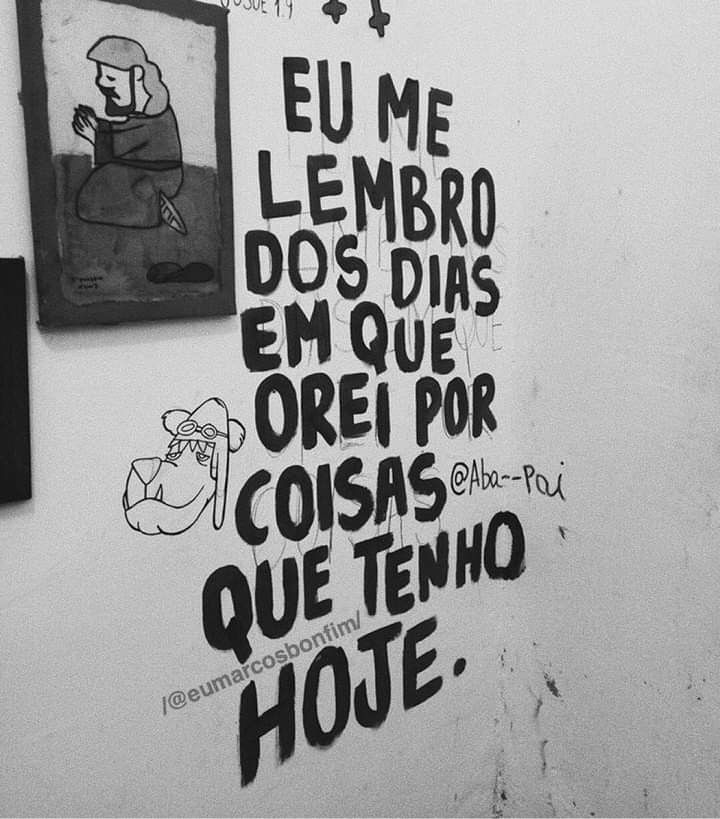 JOSUÉ 1.9
EU ME
LEMBRO
DOS DIAS
EM QUE
OREI POR
COISAS
@Aba--Pai
QUE TENHO
/@eumarcosbonfim/
HOJE.